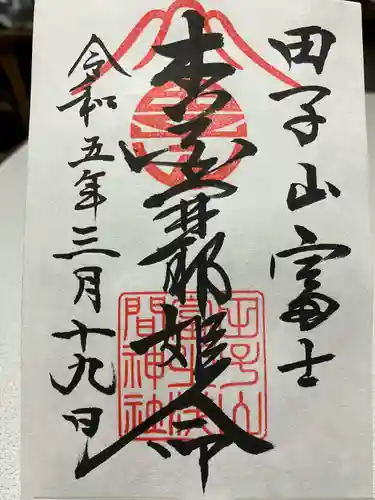 田子山富士
木花開耶姫命
令和五年三月十九日